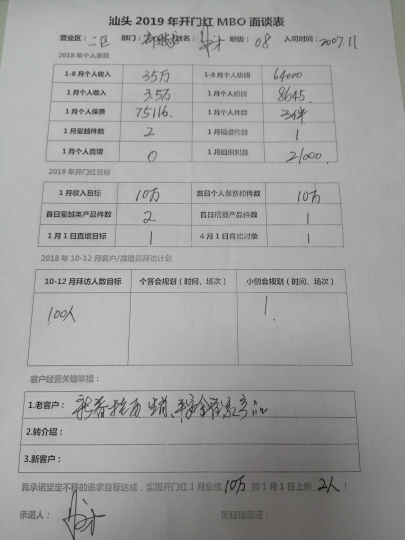 汕头 2019 年开门红 MBO 面谈表
营业区：二区 部门： 姓名： 职级：08 入司时间：2007.11
2018 年个人表现
1-8 月个人收入 35万 1-8 月个人初佣 64000
1 月个人收入 3.5万 1 月个人初佣 8645.
1 月个人保费 75116. 1 月个人件数 3件
1 月玺越件数 2 1
1 月个人直增 0 1 月组织利益 21000.
2019 年开门红目标
1 月收入目标 10万 首日个人保费和件数 10万
首日玺越类产品件数 2 1
1 月 1 日直增目标 1 4 月 1 日育成对象 1
2018 年 10-12 月客户/准增员拜访计划
10-12 月拜访人数目标 个答会规划（时间、场次） 小创会规划（时间、场次）
100人 1.
客户经营关键举措：
1.老客户：
2.转介绍：
3.新客户：
我承诺坚定不移的追求目标达成，实现开门红 1 月业绩 10万 和 1 月 1 日上岗 2人！
承诺人： 区经理见证：